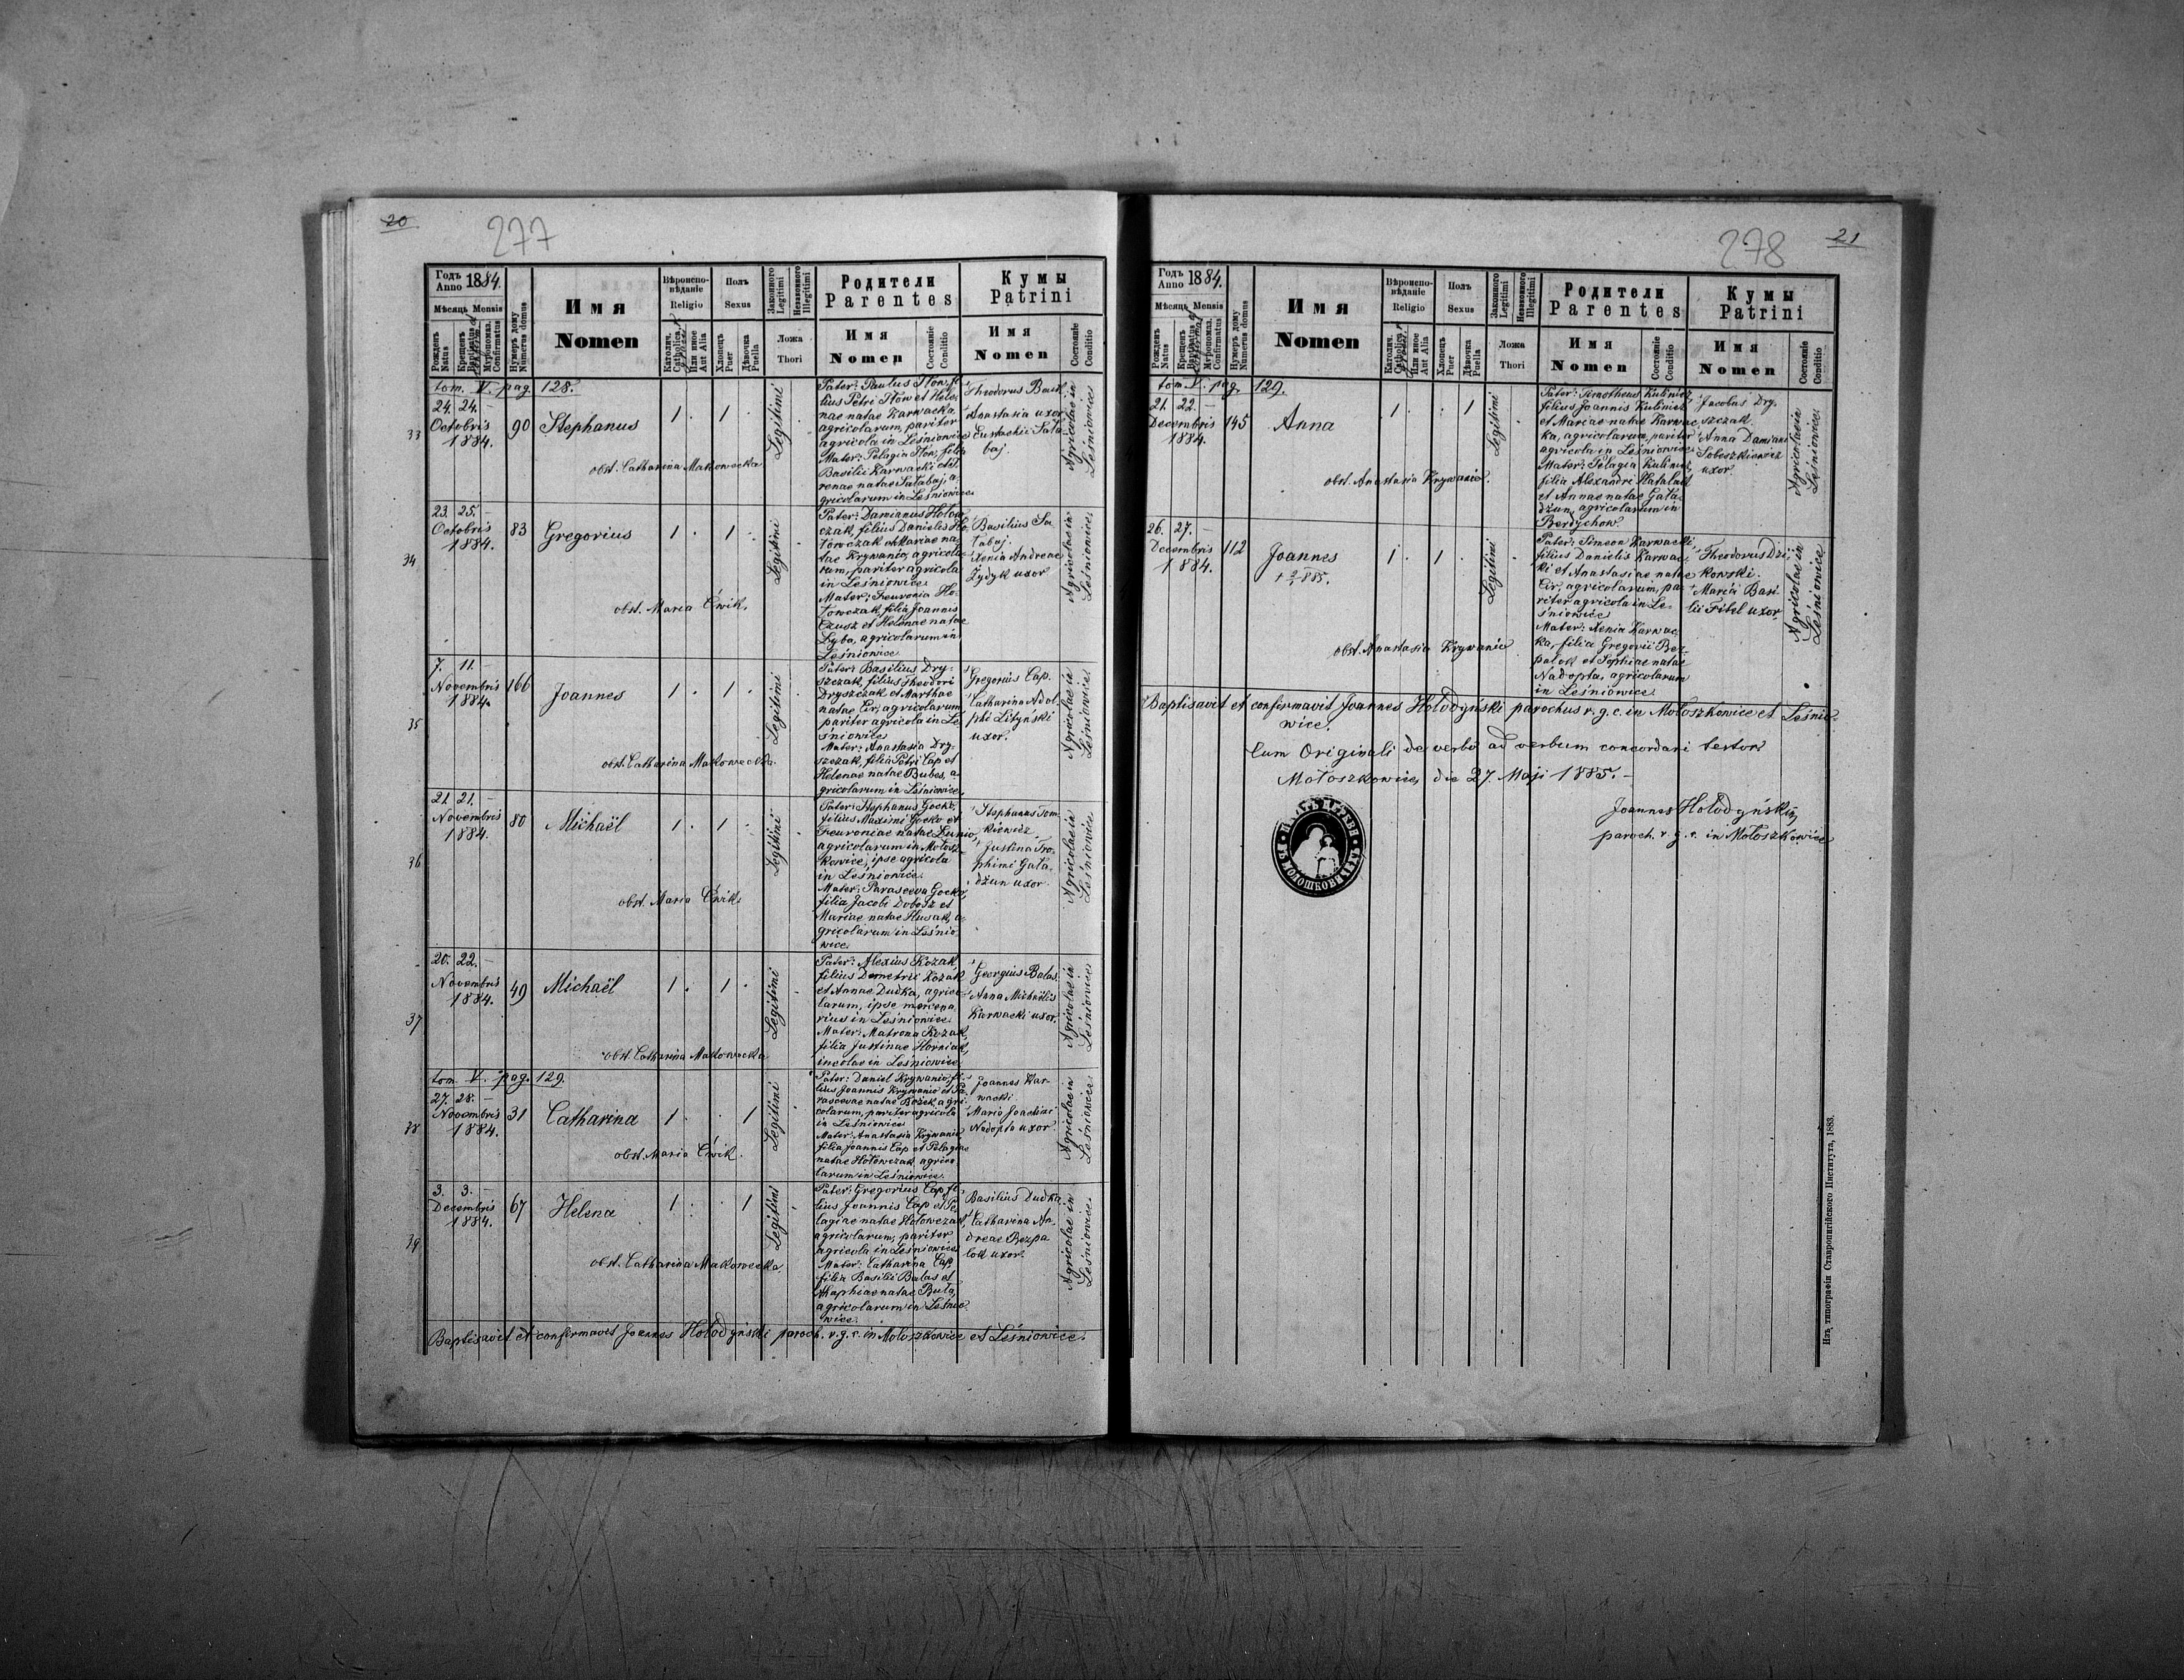 20
277
Годъ
Anno 1884.
Мѣсяць Mensis
Рожденъ
Natus
Крещенъ
Baptisatus et
Мѵропомаз.
Confirmatus
Нумеръ дому
Numerus domus
Имя
Nomen
Вѣроиспо-
вѣданіе
Religio
Католич.
Catholica
Или иное
Aut Alia
Полъ
Sexus
Хлопецъ
Puer
Дѣвочка
Puella
Законного
Legitimi
Незаконного
Illegitimi
Ложа
Thori
Родители
Parentes
Имя
Nomen
Состояніе
Conditio
Кумы
Patrini
Имя
Nomen
Состояніе
Conditio
tom. V. pag. 128.
33
24. 24. –
Octobris
1884.
90
Stephanus
1 . 1 .
Legitimi
obst. Catharina Makowecka
Pater: Paulus Ston, fi-
lius Petri Ston et Hele-
nae natae Karwacka,
agricolarum, pariter
agricola in Leśniowice
Mater: Pelagia Ston, filia
Basilii Karwacki et I-
renae natae Sałabaj, a-
gricolarum in Leśniowice
Theodorus
Anastasia uxor
Eustachii Sała-
baj.
Agricolae in
Leśniowice
34
23. 25. –
Octobris
1884.
83
Gregorius
1 . 1 .
Legitimi
obst. Maria Ćwik.
Pater: Damianus Hołow-
czak, filius Danielis Ho-
łowczak et Mariae na-
tae Krywanio, agricola-
rum, pariter agricola
in Leśniowice
Mater: Feuronia Ho-
łowczak, filia Joannis
Czusz et Helenae natae
Łyba, agricolarum in
Leśniowice
Basilius Sa-
łabaj.
Xenia Andreae
Żydyk uxor
Agricolae in
Leśniowice
35
7. 11. –
Novembris
1884.
166
Joannes
1 . 1 .
Legitimi
obst. Catharina Makowecka
Pater: Basilius Dry-
szczak, filius Theodori
Dryszczak et Marthae
natae Cir, agricolarum,
pariter agricola in Le-
śniowice
Mater: Anastasia Dry-
szczak, filia Petri Cap et
Helenae natae Bubes, a-
gricolarum in Leśniowice
Gregorius Cap.
Catharina Adol-
phi Lityński
uxor.
Agricolae in
Leśniowice
36
21. 21. –
Novembris
1884.
80
Michaël
1 . 1 .
Legitimi
obst. Maria Ćwik.
Pater: Stephanus Gocko,
filius Maximi Gocko et
Feuroniae natae Lunio,
agricolarum in Mołosz-
kowice, ipse agricola
in Leśniowice.
Mater: Parasceva Gocko,
filia Jacobi Dobosz et
Mariae natae Husak, a-
gricolarum in Leśnio-
wice.
Stephanus Tom-
kiewicz.
Justina Tro-
phimi Gała-
dżun uxor
Agricolae in
Leśniowice
37
20. 22. –
Novembris
1884.
49
Michaël
1 . 1 .
Legitimi
obst. Catharina Makowecka
Pater: Alexius Kozak,
filius Demetrii Kozak
et Annae Dudka, agrico-
larum, ipse mercena-
rius in Leśniowice.
Mater: Matrona Kozak,
filia Justinae Horniak,
incolae in Leśniowice.
Georgius Balas.
Anna Michaëlis
Karwacki uxor.
Agricolae in
Leśniowice
tom. V. pag. 129.
38
27. 28. –
Novembris
1884.
31
Catharina
1 . . 1
Legitimi
obst. Maria Ćwik.
Pater: Daniel Krywanio, fi-
lius Joannis Krywanio et Pa-
rascevae natae Bożek, agri-
colarum, pariter agricola
in Leśniowice
Mater: Anastasia Krywanio,
filia Joannis Cap et Pelagiae
natae Hołowczak, agrico-
larum in Leśniowice.
Joannes Kar-
wacki.
Maria Joachimi
Nadopta uxor.
Agricolae in
Leśniowice.
39
3. 3. –
Decembris
1884.
67
Helena
1 . . 1
Legitimi
obst. Catharina Makowecka.
Pater: Gregorius Cap, fi-
lius Joannis Cap et Pe-
lagiae natae Hołowczak,
agricolarum, pariter
agricola in Leśniowice
Mater: Catharina Cap,
filia Basilii Balas et
Agaphiae natae Buła,
agricolarum in Leśnio-
wice.
Basilius Dudka.
Catharina An-
dreae Bezpa-
lok uxor.
Agricolae in
Leśniowice.
Baptisavit et confirmavit Joannes Hołodyński paroch. r. g. c. in Mołoszkowice et Leśniowice.
278
21
Годъ
Anno 1884.
Мѣсяць Mensis
Рожденъ
Natus
Крещенъ
Baptisatus et
Мѵропомаз.
Confirmatus
Нумеръ дому
Numerus domus
Имя
Nomen
Вѣроиспо-
вѣданіе
Religio
Католич.
Catholica
Или иное
Aut Alia
Полъ
Sexus
Хлопецъ
Puer
Дѣвочка
Puella
Законного
Legitimi
Незаконного
Illegitimi
Ложа
Thori
Родители
Parentes
Имя
Nomen
Состояніе
Conditio
Кумы
Patrini
Имя
Nomen
Состояніе
Conditio
tom. V. pag. 129.
21. 22. –
Decembris
1884.
145
Anna
1 . . 1
Legitimi
obst. Anastasia Krywanio.
Pater: Timotheus Kuliniez,
filius Joannis Kuliniez
et Mariae natae Karwac-
ka, agricolarum, pariter
agricola in Leśniowice
Mater: Pelagia Kuliniez,
filia Alexandri Hałaład
et Annae natae Gała-
dżun, agricolarum in
Berdychow
Jacobus Dry-
szczak.
Anna Damiani
Sobeszkiewicz
uxor.
Agricolae in
Leśniowice.
26. 27. –
Decembris
1884.
112
Joannes
1 . 1 .
Legitimi
obst. Anastasia Krywanio
Pater: Simeon Karwacki,
filius Danielis Karwac-
ki et Anastasiae natae
Cir, agricolarum, pa-
riter agricola in Le-
śniowice
Mater: Xenia Karwac-
ka, filia Gregorii Bez-
palok et Sophiae natae
Nadopta, agricolarum
in Leśniowice.
Theodorus Dzi-
kowski.
Maria Basi-
lii Fibel uxor.
Agricolae in
Leśniowice
Baptisavit et confirmavit Joannes Hołodyński parochus r. g. c. in Mołoszkowice et Leśnio-
wice.
Cum Originali de verbo ad verbum concordari testor
Mołoszkowice, die 27. Maji 1885. –
Joannes Hołodyński
paroch. r. g. c. in Mołoszkowice
Изъ типографіи Ставропигійского Института, 1883.